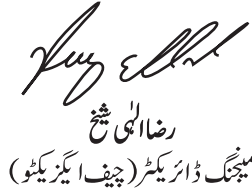 رضا الٰہی شیخ
مینجنگ ڈائریکٹر (چیف ایگزیکٹو)